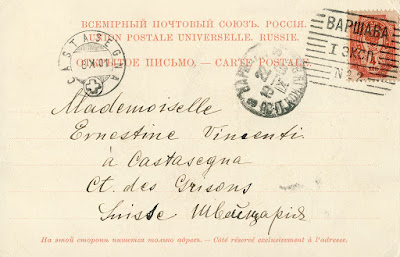 ВСЕМІРНЫЙ ПОЧТОВЫЙ СОЮЗЪ. РОССІЯ.
UNION POSTALE UNIVERSELLE. RUSSIE.
ОТКРЫТОЕ ПИСЬМО. — CARTE POSTALE.
CASTASEGNA
IX.01
ВАРШАВА
I ЭКСП.
Mademoiselle
Ernestine Vincenti
à Castasegna
Ct. des Grisons
Suisse Швейцарія
На этой сторонѣ пишется только адресъ. — Côté réservé exclusivement à l'adresse.